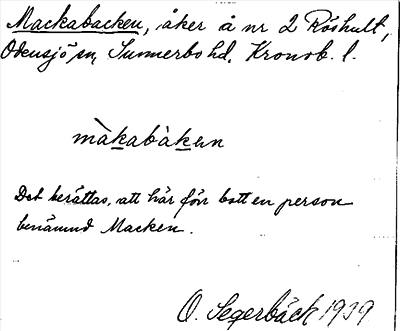 Mackabacken, åker å nr 2 Röshult,
Odensjö sn, Sunnerbo hd, Kronob. l.
màkabàken
Det berättas, att här förr bott en person
benämnd Macken.
O. Segerbäck 1939